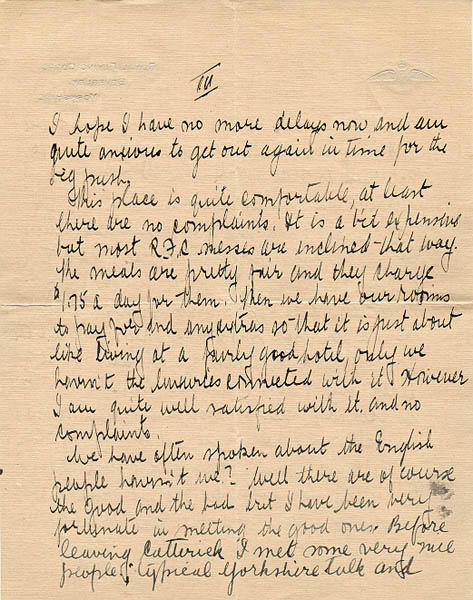 III
I hope I have no more delays now and am
quite anxious to get out again in time for the
big push.
This place is quite comfortable, at least
there are no complaints. It is a bit expensive
but most R.F.C. messes are inclined that way.
The meals are pretty fair and they charge
$1.75 a day for them. Then we have our rooms
to pay for and any extras so that it is just about
like living at a fairly good hotel, only we
haven't the luxuries connected with it. However
I am quite well satisfied with it, and no
complaints.
We have often spoken about the English
people haven't we? Well there are of course
the good and the bad but I have been very
fortunate in meeting the good ones. Before
leaving Catterick I met some very nice
people, typical Yorkshire folk and